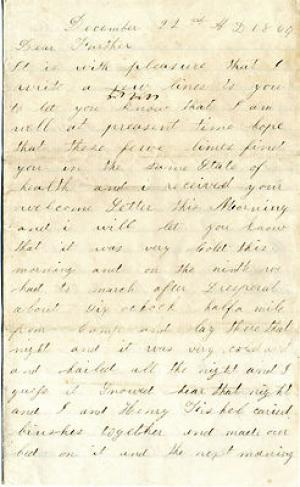 December 22nd A D 1864
Dear Farther
It is with pleasure that I
write a few lines to you
to let you know that I am
well at preasent time hope
that these fewe limes find
you in the same State of
health and i received your
welcome Letter this Morning
and i will let you know
that it was very Cold this
morning and on the ninth we
had to march after Dresperal
about six oclock half a mile
from Camp and lay there that
night and it was very cold
and hailed all the night and I
guess it Snowed dear that night
and I and Henry Fishel caried
binshes together and made our
bed on it and the next morning